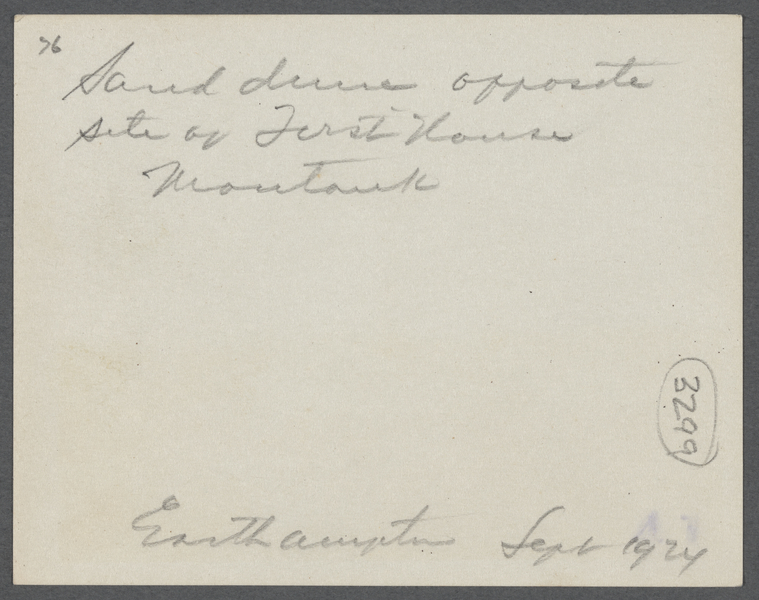 76
Sand dune opposite
site of First House
Montauk
3299
Easthampton Sept 1924